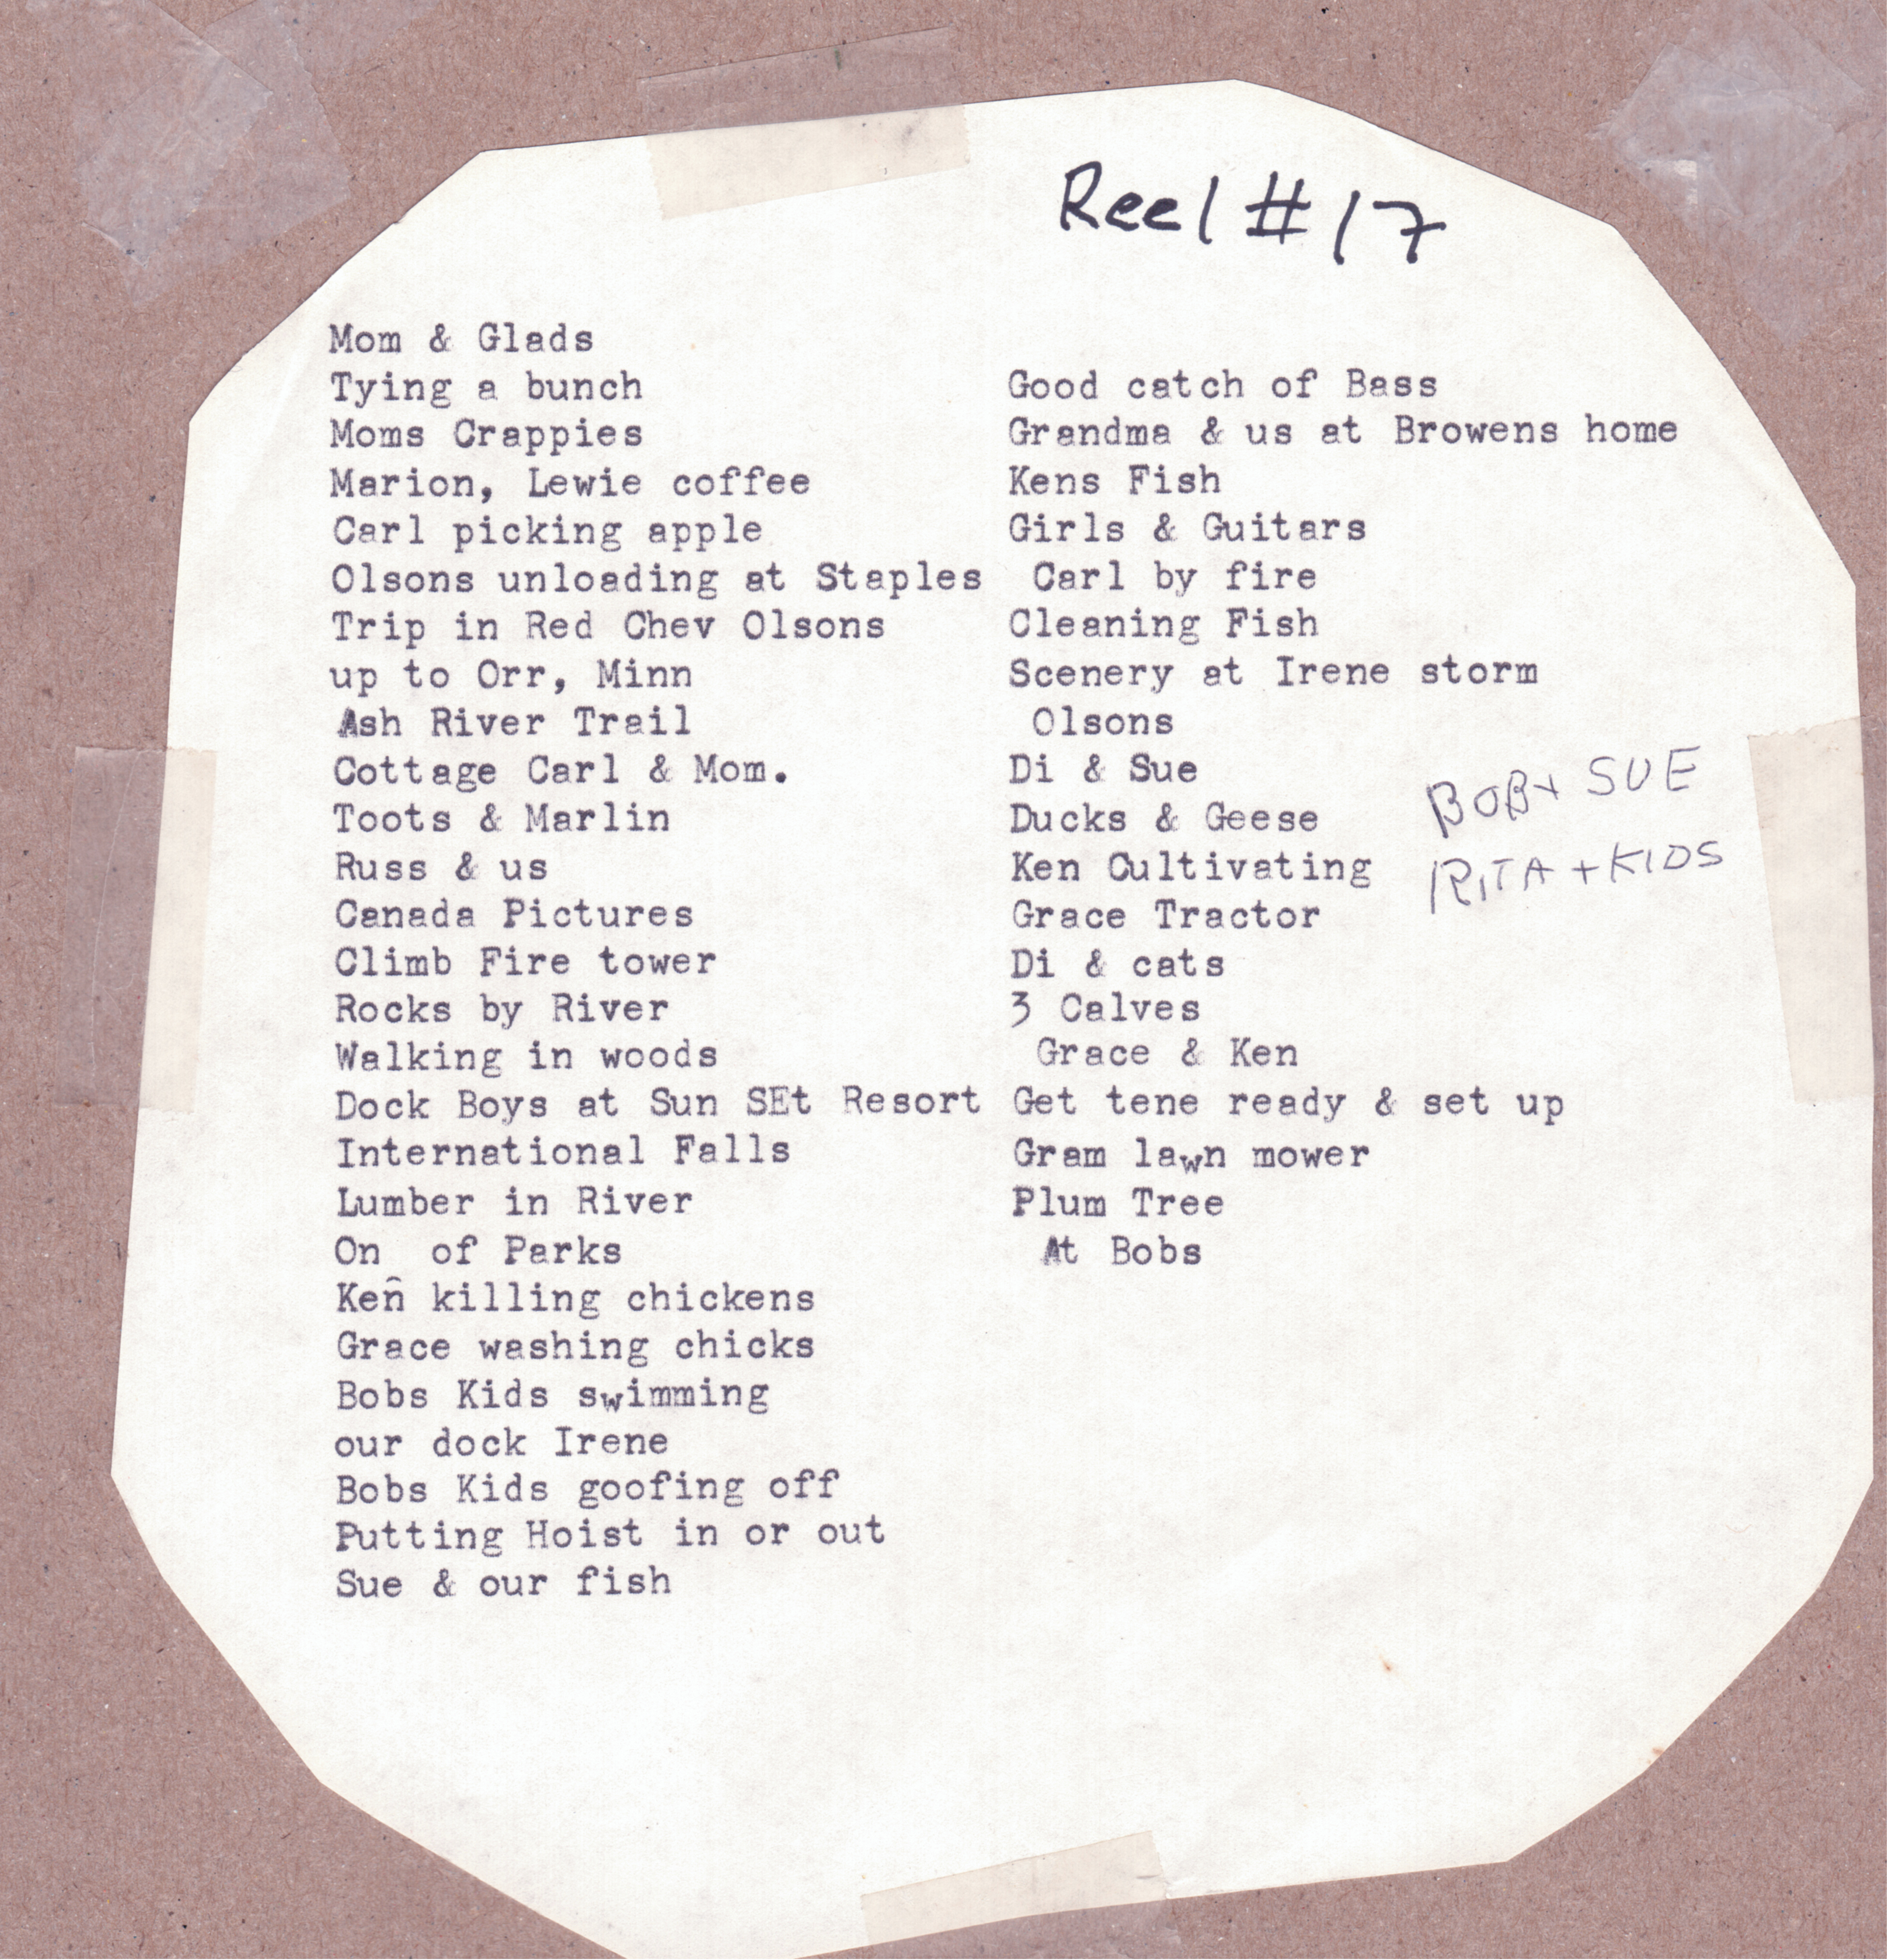 Reel #17
Mom & Glads
Tying a bunch
Moms Crappies
Marion, Lewie coffee
Carl picking apple
Olsons unloading at Staples
Trip in Red Chev Olsons
up to Orr, Minn
Ash River Trail
Cottage Carl & Mom.
Toots & Marlin
Russ & us
Canada Pictures
Climb Fire tower
Rocks by River
Walking in woods
Dock Boys at Sun SEt Resort
International Falls
Lumber in River
On of Parks
Ken killing chickens
Grace washing chicks
Bobs Kids swimming
our dock Irene
Bobs Kids goofing off
Putting Hoist in or out
Sue & our fish
Good catch of Bass
Grandma & us at Browens home
Kens Fish
Girls & Guitars
Carl by fire
Cleaning Fish
Scenery at Irene storm
Olsons
Di & Sue
Ducks & Geese
Ken Cultivating
Grace Tractor
Di & cats
3 Calves
Grace & Ken
Get tene ready & set up
Gram lawn mower
Plum Tree
At Bobs
BOB + SUE
RITA + KIDS